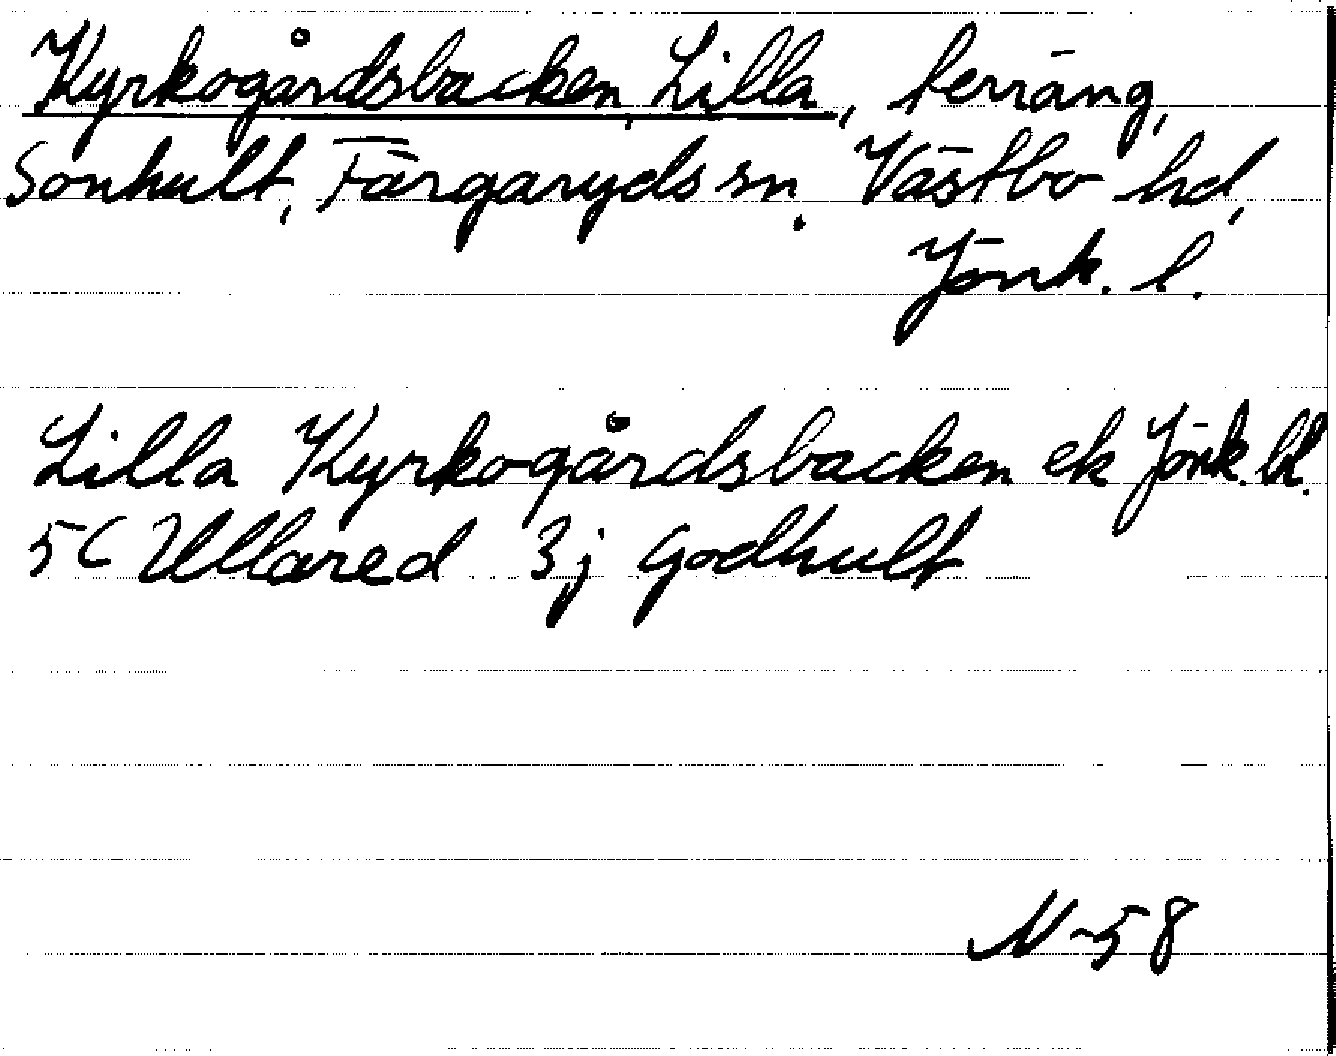 Kyrkogårdsbacken, Lilla, terräng,
Sonhult, Färgaryds sn, Västbo hd,
Jönk. l.
Lilla Kyrkogårdsbacken ek Jönk. bl.
5C Ullared 3j Godhult
N-58